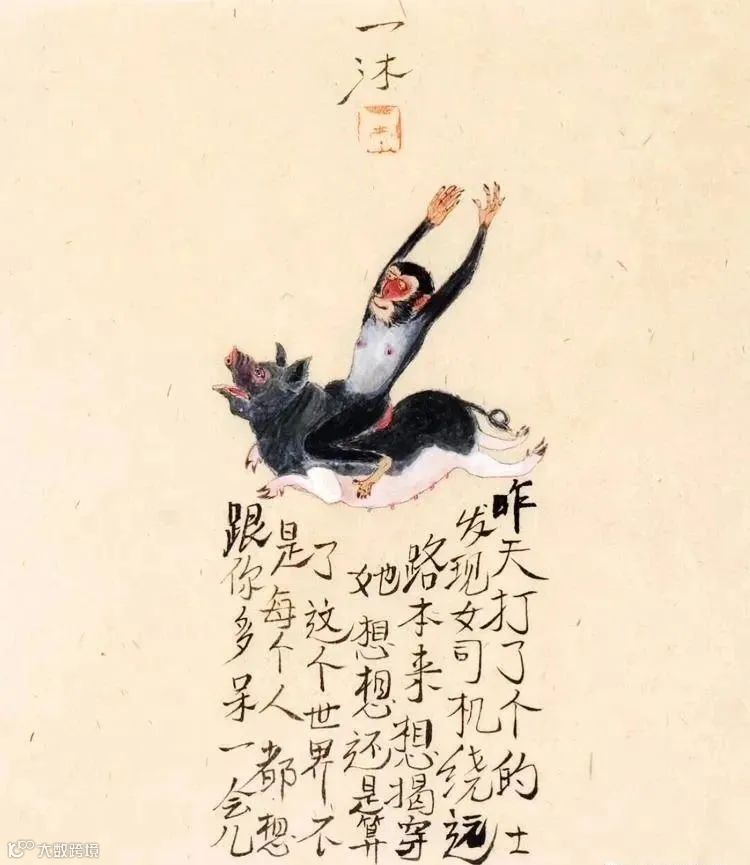 一沐
昨天打了个的士
发现女司机绕远
路本来想揭穿
她想想还是算
了这个世界不
是每个人都想
跟你多呆一会儿
大数跨境